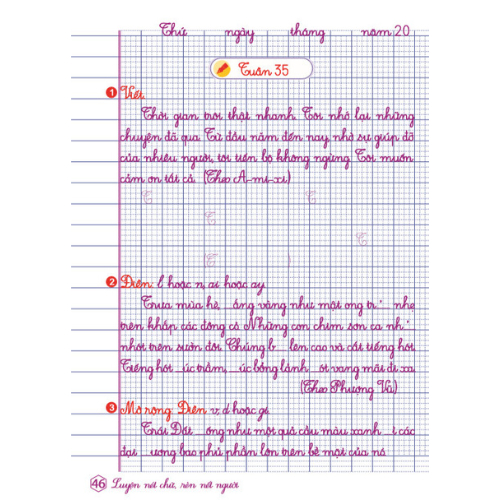 Thứ ngày tháng năm 20
Tuần 35
1 Viết.
Thời gian trôi thật nhanh. Tôi nhớ lại những
chuyện đã qua. Từ đầu năm đến nay, nhờ sự giúp đỡ
của nhiều người, tôi tiến bộ không ngừng. Tôi muốn
cảm ơn tất cả. (Theo A-mi-xi)
T T
T
T
T )
2 Điền: l hoặc n, ai hoặc ay.
Trưa mùa hè, _ắng vàng như mật ong tr... nhẹ
trên khắp các đồng cỏ. Những con chim sơn ca nh...
nhót trên sườn đồi. Chúng b... lên cao và cất tiếng hót.
Tiếng hót _úc trầm, _úc bổng lảnh _ót vang mãi đi xa.
(Theo Phượng Vũ)
3 Mở rộng: Điền v, d hoặc gi.
Trái Đất _ống như một quả cầu màu xanh _ì các
đại _ương bao phủ phần lớn trên bề mặt của nó.
46 Luyện nét chữ, rèn nết người